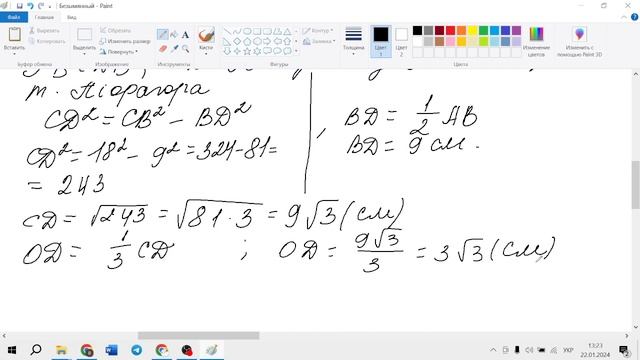 Безымянный - Paint
Файл Главная Вид
Вставить Вырезать Копировать
Выделить Обрезать Изменить размер Повернуть
Кисти
Контур Заливка
Толщина
Цвет 1 Цвет 2
Изменение цветов
Изменить с помощью Paint 3D
Буфер обмена Изображение Инструменты Фигуры Цвета
т. Піфагора
CD² = CB² − BD²
CD² = 18² − 9² = 324−81=
= 243
, BD = 1/2 AB
BD = 9 см.
CD = √243 = √81·3 = 9√3 (см)
OD = 1/3 CD ; OD = 9√3/3 = 3√3 (см)
УКР
13:23
22.01.2024